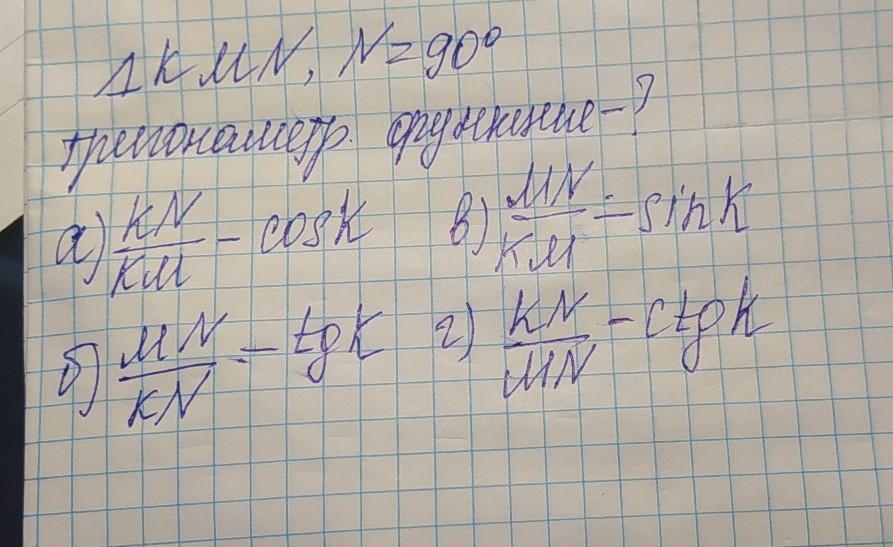 ΔKMN, N=90°
тригонометр. функцию-?
а) KN/KM - cosK в) MN/KM - sinK
б) MN/KN - tgK г) KN/MN - ctgK